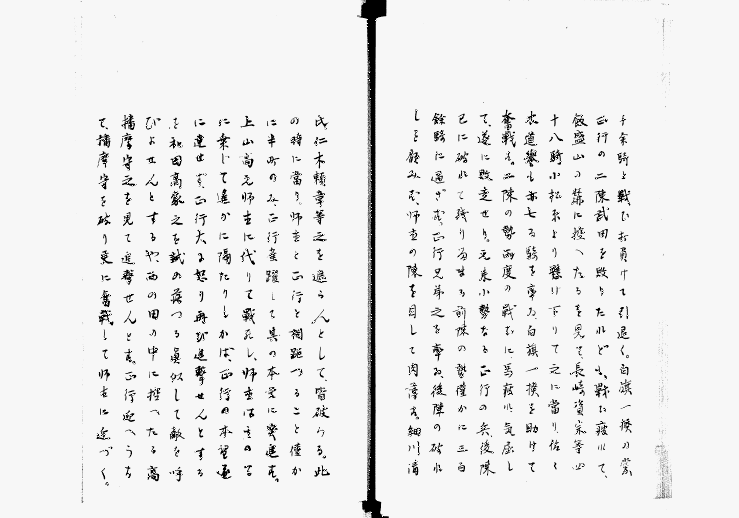 千余騎と戦ひ打負けて引退く。白旗一揆の衆
正行の二陣武田を破りたれども、戦ひ疲れて、
飯盛山の麓に控へたるを見て、長崎資宗等四
十八騎小松原より懸け下りて之に當り、佐々
木道譽も亦七百騎を率ゐ、白旗一揆を助けて
奮戦す。二陣の勢両度の戦ひに馬疲れ気屈し
て、遂に敗走せり。元来小勢なる正行の兵、後陣
已に破れて残り留まる前陣の勢僅かに三百
餘騎に過ぎず。正行兄弟之を率ゐ、後陣の破れ
しを顧みず、師直の陣を目して肉薄す。細川清
氏、仁木頼章等之を遮らんとして、皆破らる。此
の時に當り、師直と正行と相距つること僅か
に半町のみ。正行雀躍して其の本営に突進す。
上山高元師直に代りて戦死し、師直は其の間
に乗じて遙かに隔たりしかば、正行の本望遂
に達せず。正行大に怒り再び進撃せんとする
を和田高家之を諫め落つる真似して敵を呼
びよせんとするや、西の田の中に控へたる高
播磨守之を見て追撃せんとす。正行迎へうち
て、播摩守を破り更に奮戦して師直に近づく。